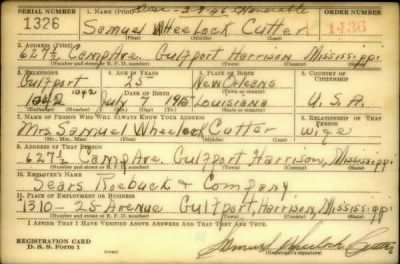 SERIAL NUMBER 1. NAME (Print) ORDER NUMBER
1326 Samuel Wheelock Cutter 1436
(First) (Middle) (Last)
2. ADDRESS (Print)
627½ Camp Ave. Gulfport Harrison Mississippi
(Number and street or R. F. D. number) (Town) (County) (State)
3. TELEPHONE 4. AGE IN YEARS 5. PLACE OF BIRTH 6. COUNTRY OF CITIZENSHIP
Gulfport 25 New Orleans
DATE OF BIRTH
1042 1042 July 7 1915 Louisiana U.S.A.
(Exchange) (Number) (Mo.) (Day) (Yr.) (State or country)
7. NAME OF PERSON WHO WILL ALWAYS KNOW YOUR ADDRESS 8. RELATIONSHIP OF THAT PERSON
Mrs. Samuel Wheelock Cutter wife
(Mr., Mrs., Miss) (First) (Middle) (Last)
9. ADDRESS OF THAT PERSON
627½ Camp Ave. Gulfport Harrison, Mississippi
(Number and street or R. F. D. number) (Town) (County) (State)
10. EMPLOYER'S NAME
Sears Roebuck & Company
11. PLACE OF EMPLOYMENT OR BUSINESS
1310-25 Avenue Gulfport, Harrison, Mississippi
(Number and street or R. F. D. number) (Town) (County) (State)
I AFFIRM THAT I HAVE VERIFIED ABOVE ANSWERS AND THAT THEY ARE TRUE.
REGISTRATION CARD
D. S. S. Form 1 Samuel Wheelock Cutter
(Registrant's signature)